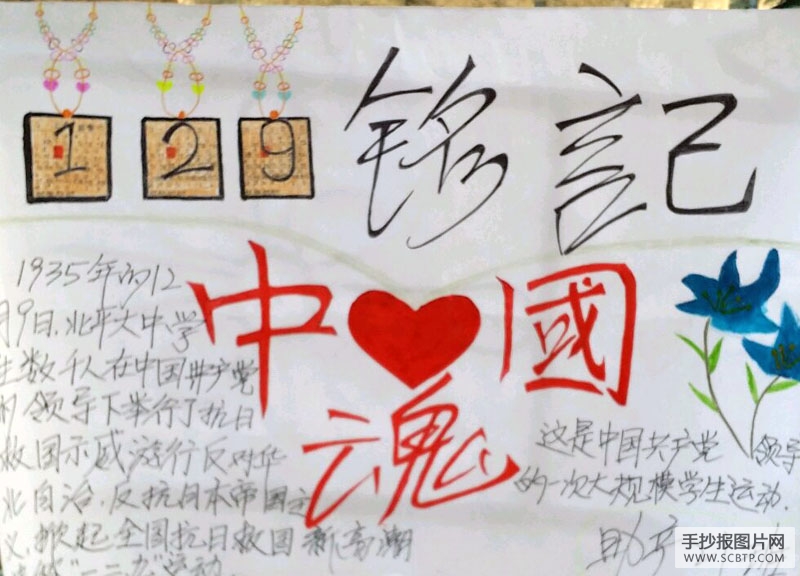 1 2 9
铭記
中國
魂
1935年的12
月9日.北平大中学
生数千人在中国共产党
的领导下举行了抗日
救国示威游行反对华
北自治.反抗日本帝国主
义.掀起全国抗日救国新高潮
"一二九"运动.
这是中国共产党领导
的一次大规模学生运动.
助产
手抄报图片网
WWW.SCBTP.COM